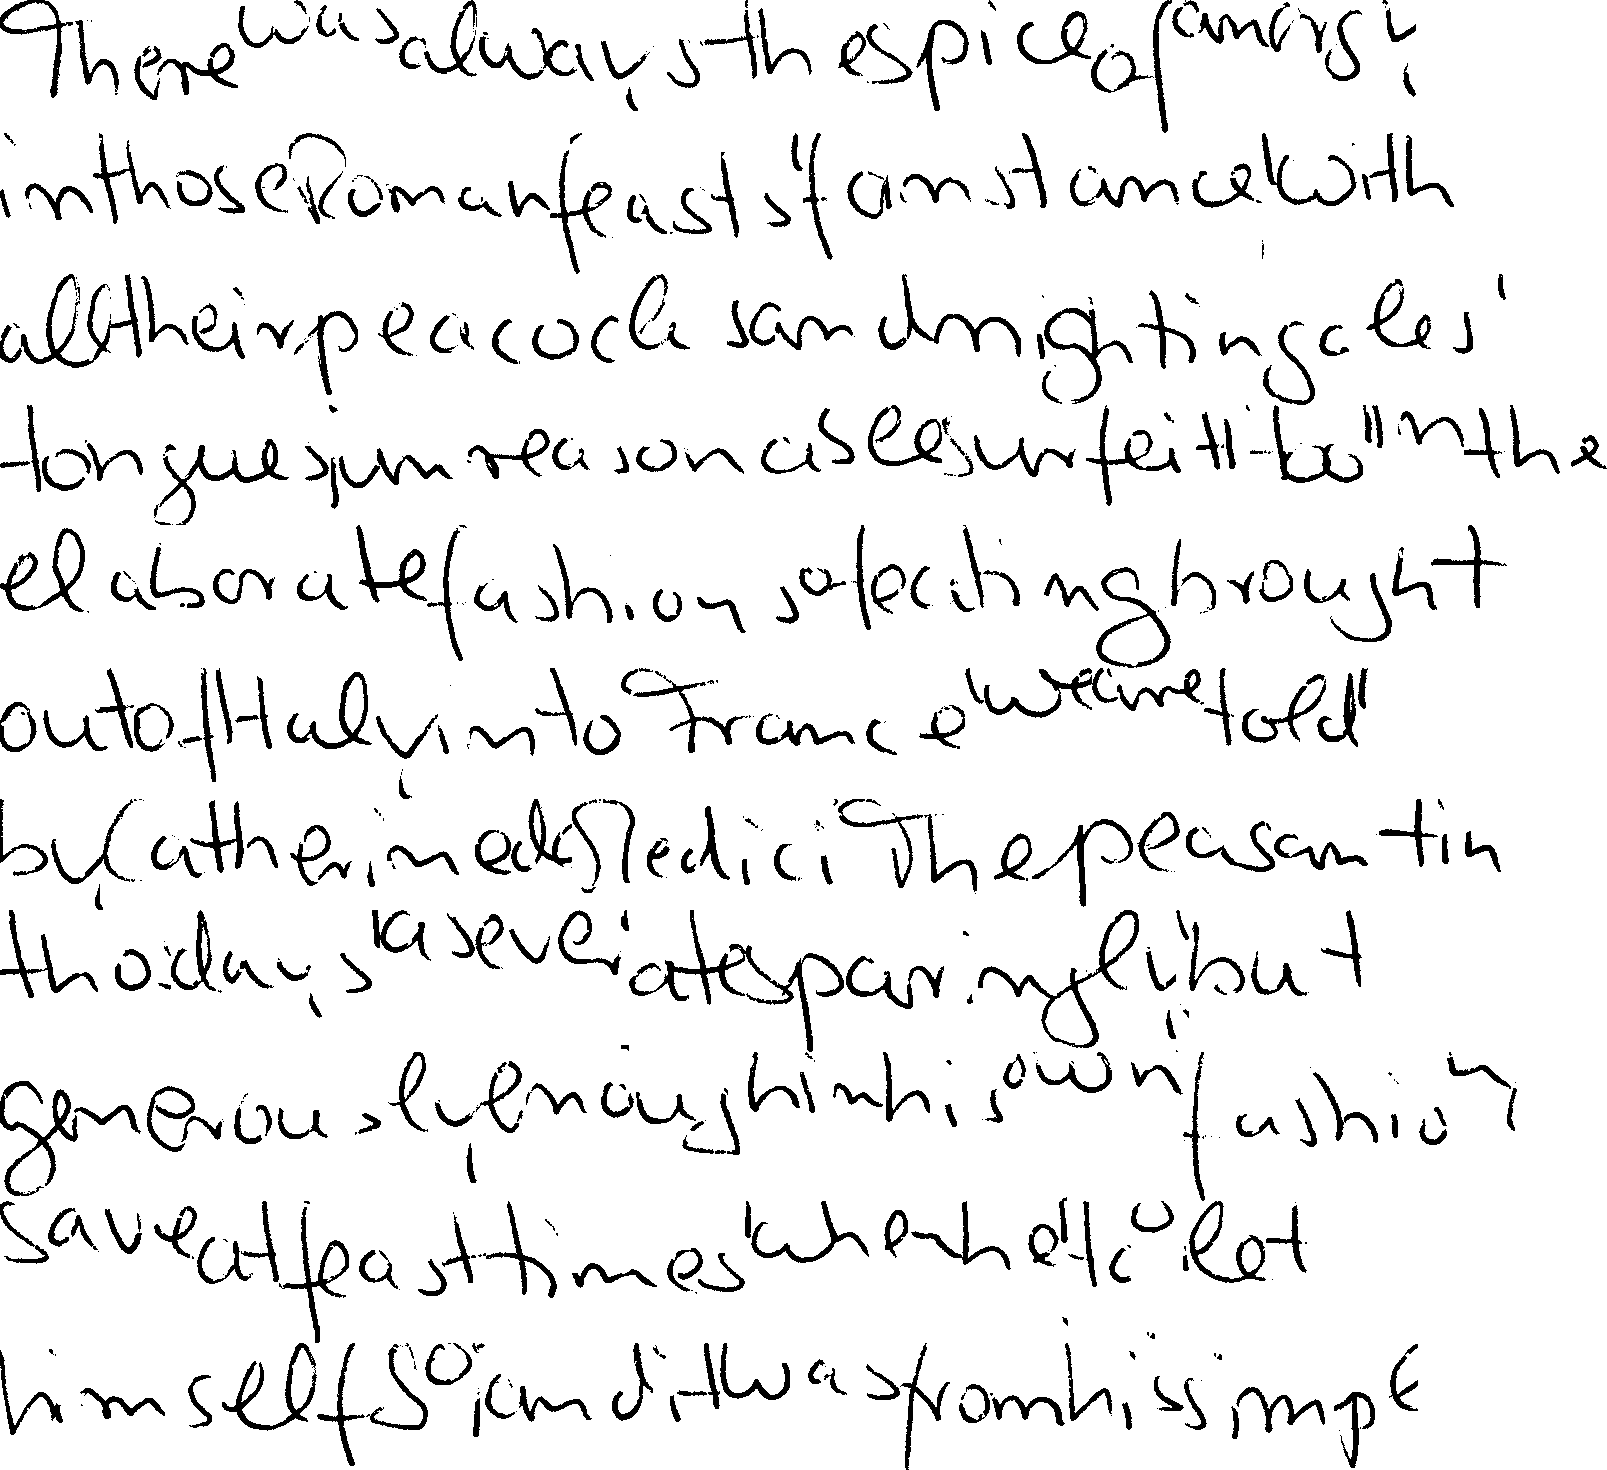 There was always the spice of energy
in those Roman feasts, for instance, with
all their peacocks and nightingales'
tongues, unreasonable surfeit too, in the
elaborate fashions of eating brought
out of Italy into France, we are told,
by Catherine de Medici. The peasant in
those days, as ever, ate sparingly, but
generously enough in his own fashion
save at feast times, when he too let
himself go, and it was from his simple